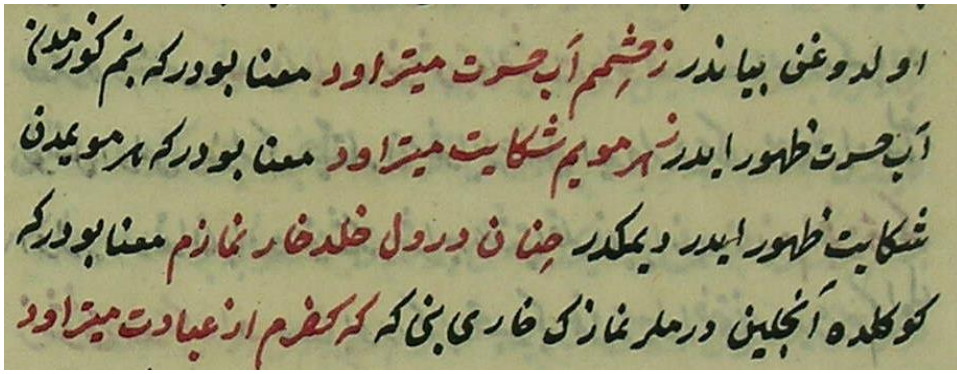 اولدوغنی بیاندر ز چشمم آب حسرت میتراود معنا بودر که بنم کوزمدن
آب حسرت ظهور ایدر ز هر مویم شکایت میتراود معنا بودر که هر مویمدن
شکایت ظهور ایدر دیمکدر چنان در دل خلد خار نمازم معنا بودر که
کوکلده آنجلین درملر نمازک خاری بنی که که کفرم از عبادت میتراود